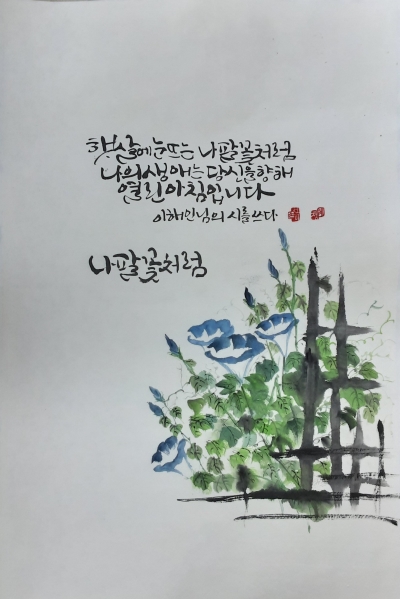 햇살에 눈뜨는 나팔꽃처럼
나의 생애는 당신을 향해
열린 아침입니다
이해인님의 시를 쓰다
나팔꽃처럼